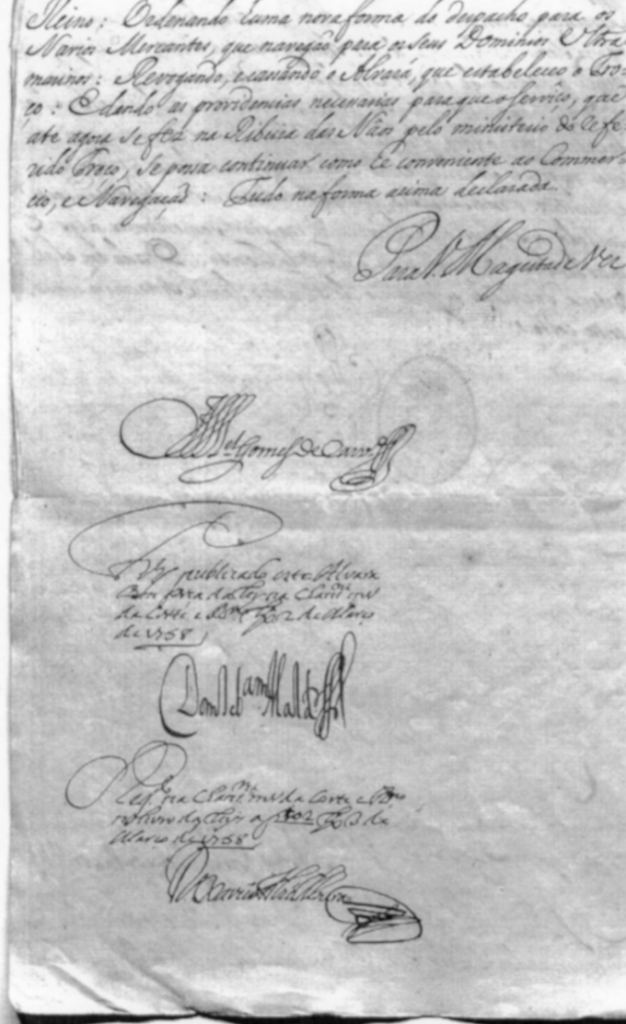 Reino: Ordenando huma nova forma do despacho para os
Navios Mercantes, que navegaõ para os seus Dominios Ultra
marinos: Revogando, e cassando o Alvará, que estabeleceo o Tro-
ço: E dando as providencias necessarias para que o serviço, que
até agora se fez na Ribeira das Náos pelo ministerio do refe-
rido Troço, se possa continuar como he conveniente ao Commer-
cio, e Navegaçaõ: Tudo na forma acima declarada.
Para V. Magestade Ver
Gomes de Carv.º
Foy publicado este Alvara
na Chanc.ria mor
da Corte e R.no Lx.ª 2 de Março
de 1758
Dom Sebam Mald.º
Reg.do na Chanc.ria mor da Corte e R.no
no livro das Leys a f 102 Lx.ª 3 de
Março de 1758